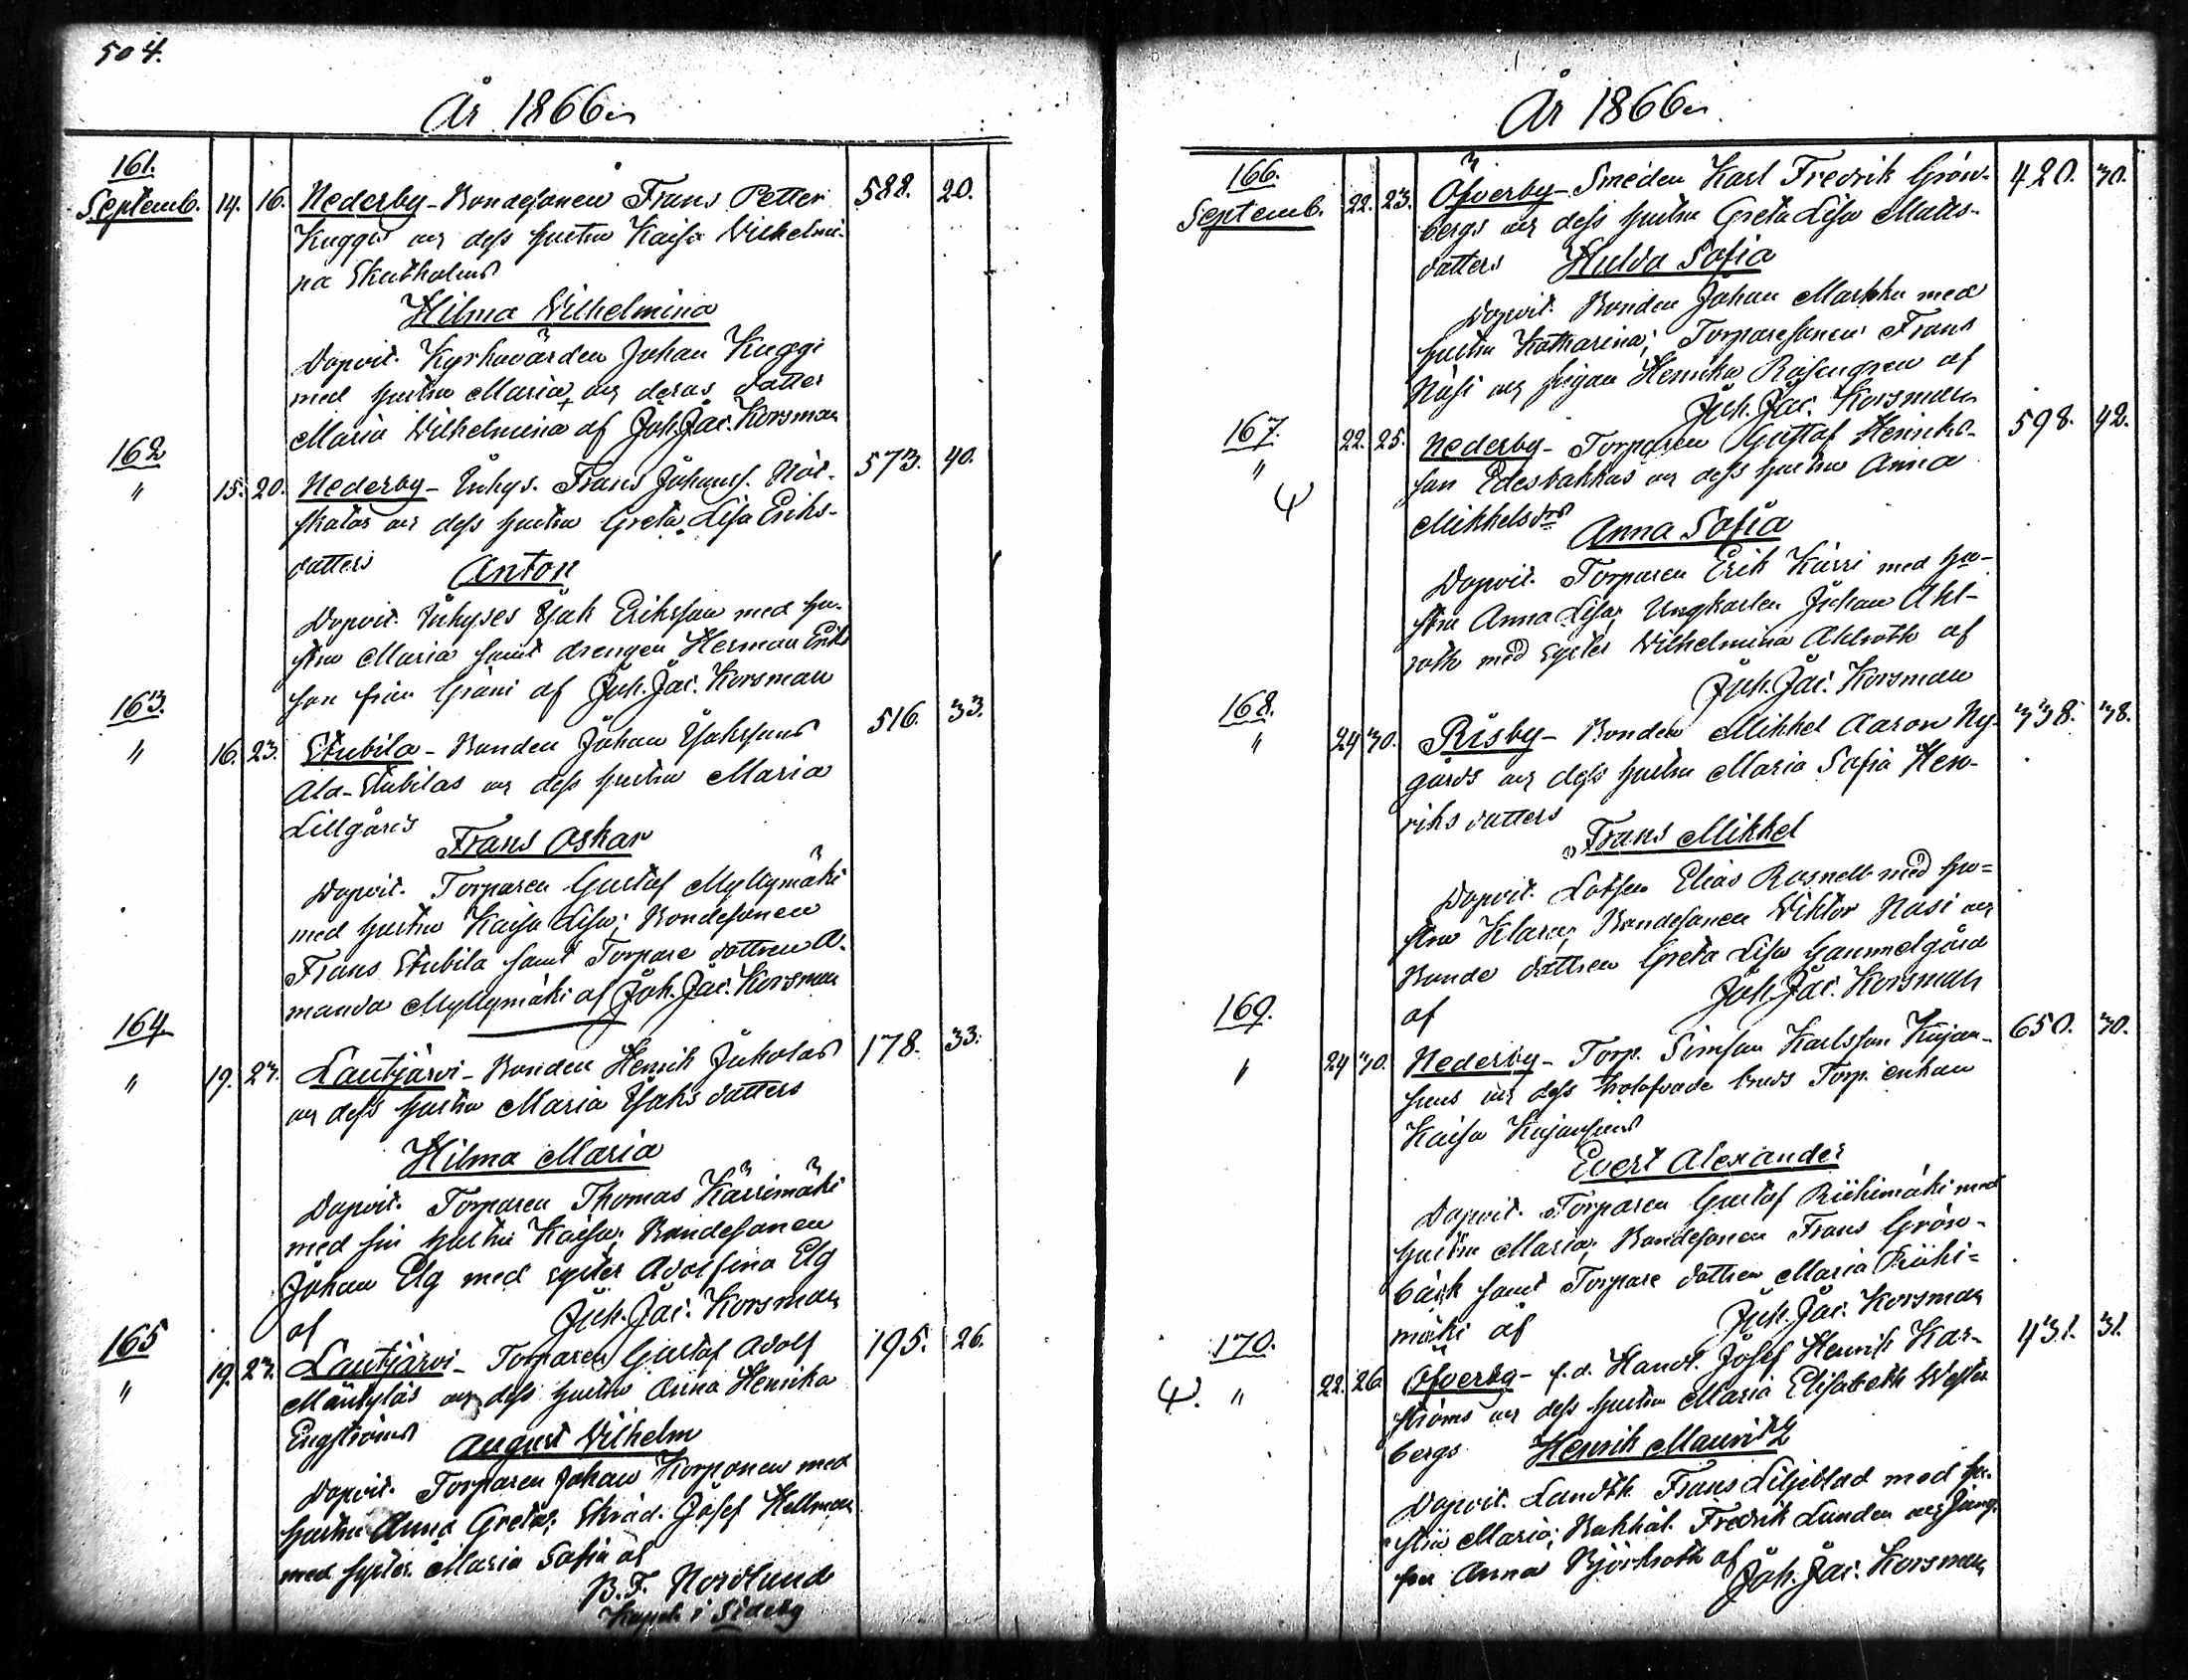 504.
År 1866.
161.
Septemb. 14. 16. Nederby - Bondesonen Frans Petter 588. 20.
Kuggis och dess hustru Kaisa Wilhelmi-
na Skutholms
Hilma Wilhelmina
Dopvit. Kyrkovärden Johan Kuggi
med hustru Maria, och deras dotter
Maria Wilhelmina af Joh. Jac. Korsman
162
" 15. 20. Nederby - Inhys. Frans Johanss. När- 573. 40.
skatas och dess hustru Greta Lisa Eriks-
dotters Anton
Dopvit. Inhyses Isak Eriksson med hu-
stru Maria samt drengen Herman Eriks
son från Gräni af Joh. Jac. Korsman
163.
" 16. 23. Stubila - Bonden Johan Isakssons 516. 33.
Ala-Stubilas och dess hustru Maria
Lillgårds
Frans Oskar
Dopvit. Torparen Gustaf Myllymäki
med hustru Kaisa Lisa; Bondesonen
Frans Stubila samt Torpare dottren A-
manda Myllymäki af Joh. Jac. Korsman
164
" 19. 27. Lautjärvi - Bonden Henrik Juholas 178. 33.
och dess hustru Maria Isaksdotters
Hilma Maria
Dopvit. Torparen Thomas Kärrimäki
med sin hustru Kaisa; Bondesonen
Johan Elg med syster Adolfina Elg
af Joh. Jac. Korsman
165
" 19. 27. Lautjärvi - Torparen Gustaf Adolf 195. 26.
Mäntyläs och dess hustru Anna Henrika
Engströms August Wilhelm
Dopvit. Torparen Johan Korponen med
hustru Anna Greta; Skräd. Josef Hellman
med syster Maria Sofia af
B. F. Nordlund
Kapell. i Sideby
År 1866.
166.
Septemb. 22. 23. Öfverby - Smeden Karl Fredrik Grön- 420. 30.
bergs och dess hustru Greta Lisa Matts-
dotters Hulda Sofia
Dopvit. Bonden Johan Markku med
hustru Katharina; Torparesonen Frans
Näsi och pigan Henrika Rosengren af
Joh. Jac. Korsman
167. 22. 25. Nederby - Torparen Gustaf Henriks- 598. 42.
" son Edesbakkas och dess hustru Anna
Mikkelsdrs Anna Sofia
Dopvit. Torparen Erik Kärri med hu-
stru Anna Lisa; Ungkarlen Johan Ahl-
roth med syster Wilhelmina Ahlroth af
Joh. Jac. Korsman
168.
" 24 30. Risby - Bonden Mikkel Aaron Ny- 338. 38.
gårds och dess hustru Maria Sofia Hen-
riksdotters
Frans Mikkel
Dopvit. Lotsen Elias Rosnell med hu=
stru Klara; Bondesonen Wiktor Näsi och
Bonde dottren Greta Lisa Gammelgård
af Joh. Jac. Korsman
169.
" 24 30. Nederby - Torp. Simson Karlsson Kujan- 650. 30.
suus och dess trolofvade bruds Torp. enkan
Kaisa Kujansuus
Evert Alexander
Dopvit. Torparen Gustaf Riihimäki med
hustru Maria; Bondesonen Frans Grön-
bäck samt Torpare dottren Maria Riihi=
mäki af Joh. Jac. Korsman
170.
" 22. 26. Öfverby - f.d. Handl. Josef Henrik Kar- 431. 31.
ströms och dess hustru Maria Elisabeth Wester
bergs Henrik Mauritz
Dopvit. Landtk. Frans Liljeblad med hu-
stru Maria; Bokhål. Fredrik Lunden och Jung-
fru Anna Björkroth af Joh. Jac. Korsman